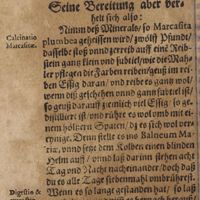 Seine Bereitung aber ver-
helt sich also:
Calcinatio
Marcasitæ.
Nimm deß Minerals / so Marcasita
plumbea geheissen wird / zwölff Pfundt /
dasselb stoß vnnd zerreib auff eine Reib-
stein gantz klein vnd subtiel / wie die Mah-
ler pflegen der Farben reiben / geuß im rei-
ben Essig daran / vnd reibe es gantz wol /
wenn diß geschehen vnnd gantz subtiel ist /
so geuß darauff ziemlich viel Essig / so de-
stilliert ist / vnd rührs es wol vmb mit ei-
nem höltzen Spaten / dz es wol vermi-
schet werde. Denn stelle es ins Balneum Ma-
riæ, vnnd setze dem Kolben einen blinden
Helm auff / vnnd laß darinn stehen acht
Tag vnd Nacht nacheinander / doch daß
du es alle Tag siebenmahl vmbrührest.
Digestio &
Wenn es so lange gestanden hat / so laß